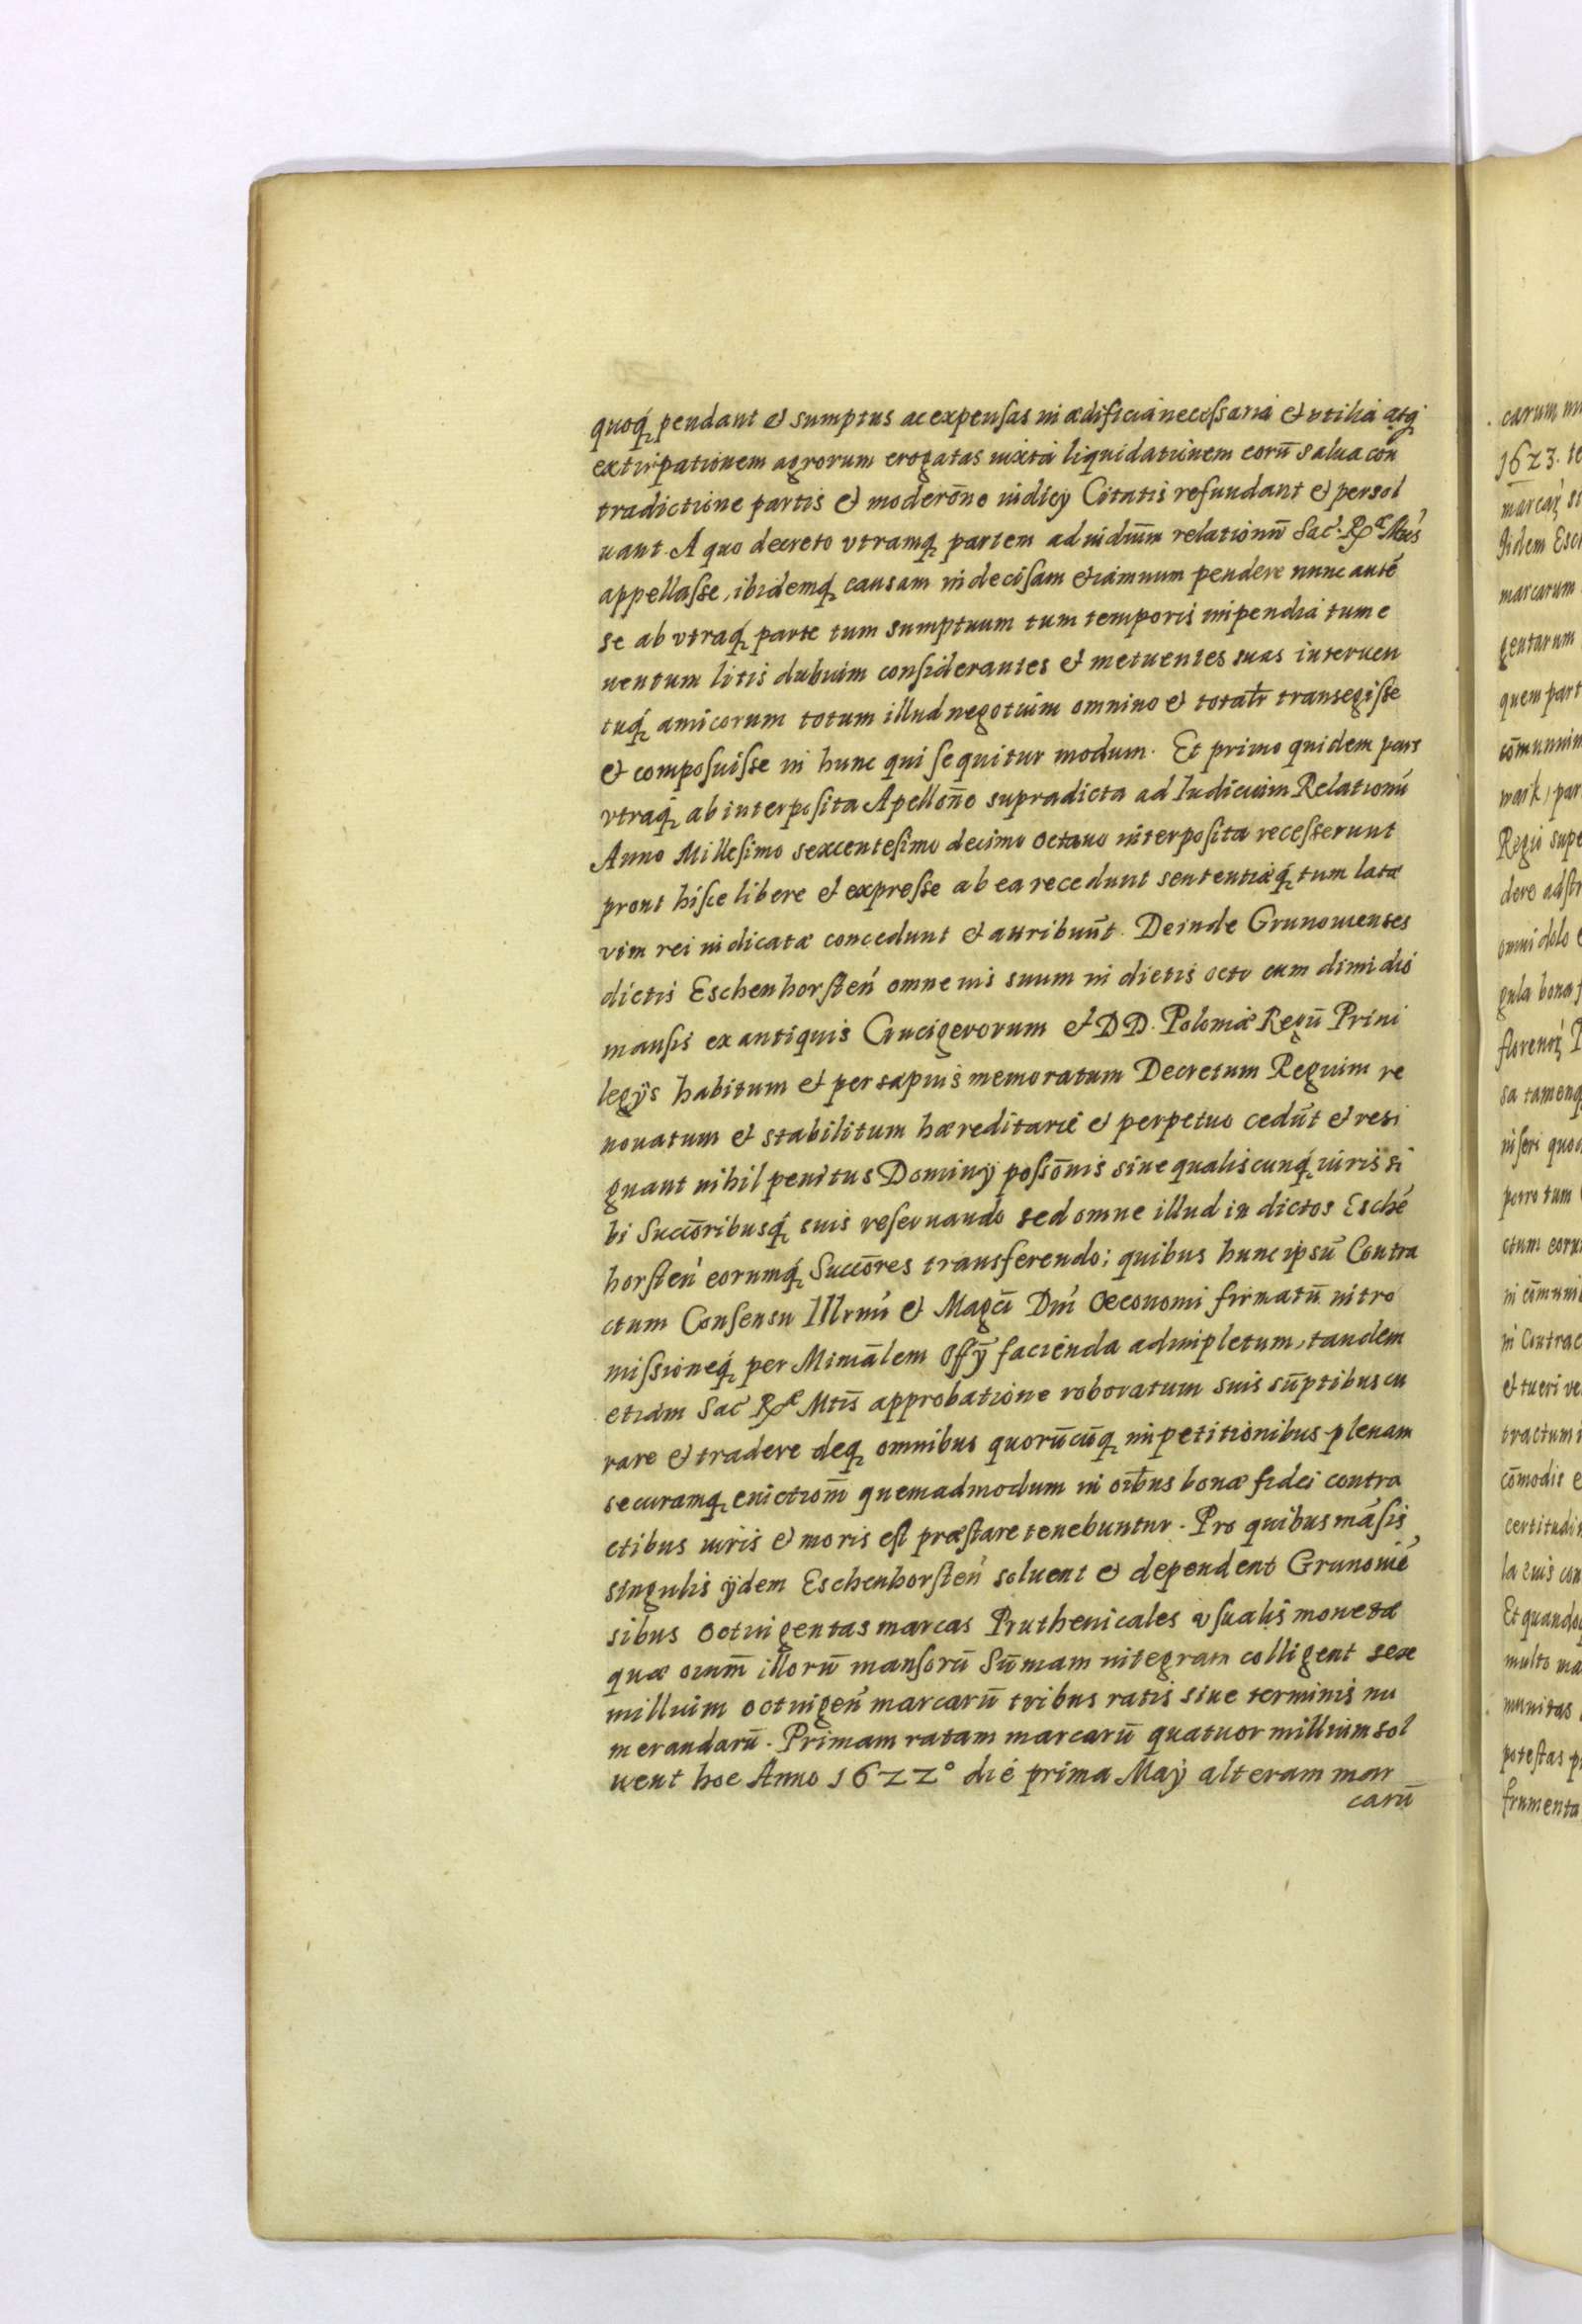 quoq́ pendant et sumptus ac expensas in ædificia necessaria et vtilia atq́
extirpationem agrorum erogatas iuxta liquidationem eorū salua con
tradictione partis et moderōne iudicÿ Citatis refundant et persol
uant. A quo decreto vtramq́ partem ad iudiūm relationū Sac. Rꝫæ Mtis
appellasse, ibidemq́ causam indecisam etiamnum pendere nunc autē
se ab vtraq́ parte tum sumptuum tum temporis inpendia tum e
uentum litis dubium considerantes et metuentes suas interuen
tuq́ amicorum totum illud negotium omnino et totalr̄ transegisse
et composuisse in hunc qui sequitur modum. Et primo quidem pars
vtraq́ ab interposita Apellōne supradicta ad Iudicium Relationū
Anno Millesimo sexcentesimo decimo octauo interposita recesserunt
prout hisce libere et expresse ab ea recedunt sententiæq́ tum latæ
vim rei iudicatæ concedunt et attribuūt. Deinde Grunouienses
dictis Eschenhorsteń omne ius suum in dictis octo cum dimidio
mansis ex antiquis Crucigerorum et DD. Poloniæ Regū Priui
legÿs habitum et per sæpius memoratum Decretum Regium re
nouatum et stabilitum hæreditarie et perpetuo cedūt et resi
gnant nihil penitus Dominÿ possōnis siue qualiscunq́ iuris si
bi Succōribusq́ suis reseruando sed omne illud in dictos Eschē
horsteń eorumq́ Succōres transferendo: quibus hunc ipsū Contra
ctum Consensu Illrmi et Magci Dńi Oeconomi firmatū intro
missioneq́ per Miniālem Offÿ facienda adimpletum, tandem
etiam Sac Rꝫæ Mtis approbatione roboratum suis sūptibus cu
rare et tradere deq́ omnibus quorūcūq́ inpetitionibus plenam
securamq́ euictiōm quemadmodum in oībus bonæ fidei contra
ctibus iuris et moris est præstare tenebuntur. Pro quibus māsis
singulis ÿdem Eschenhorsteń soluent et dependent Grunouiē
sibus octuigentas marcas Pruthenicales vsualis monetæ
quæ oium̄ illorū mansorū Sūmam integram colligent sex
millium octuigeń marcarū tribus ratis siue terminis nu
merandarū. Primam ratam marcarū quatuor millium sol
uent hoc Anno 1622° die prima Maÿ alteram mar
carū
carum
1623. te
marcaŕ
Iidem Esch
marcarum
gentarum
quem part
cōmunim
mark, par
Regio supe
dere adstr
omni dolo e
gula bona f
florenoŕ P
sa tamenq
niseri quod
porro tum
ctum eoru
in cōmuni
in Contrac
et tueri ve
tractum i
cōmodis e
certitudin
la eius con
Et quandoq
multo ma
munitas
potestas p
frumenta